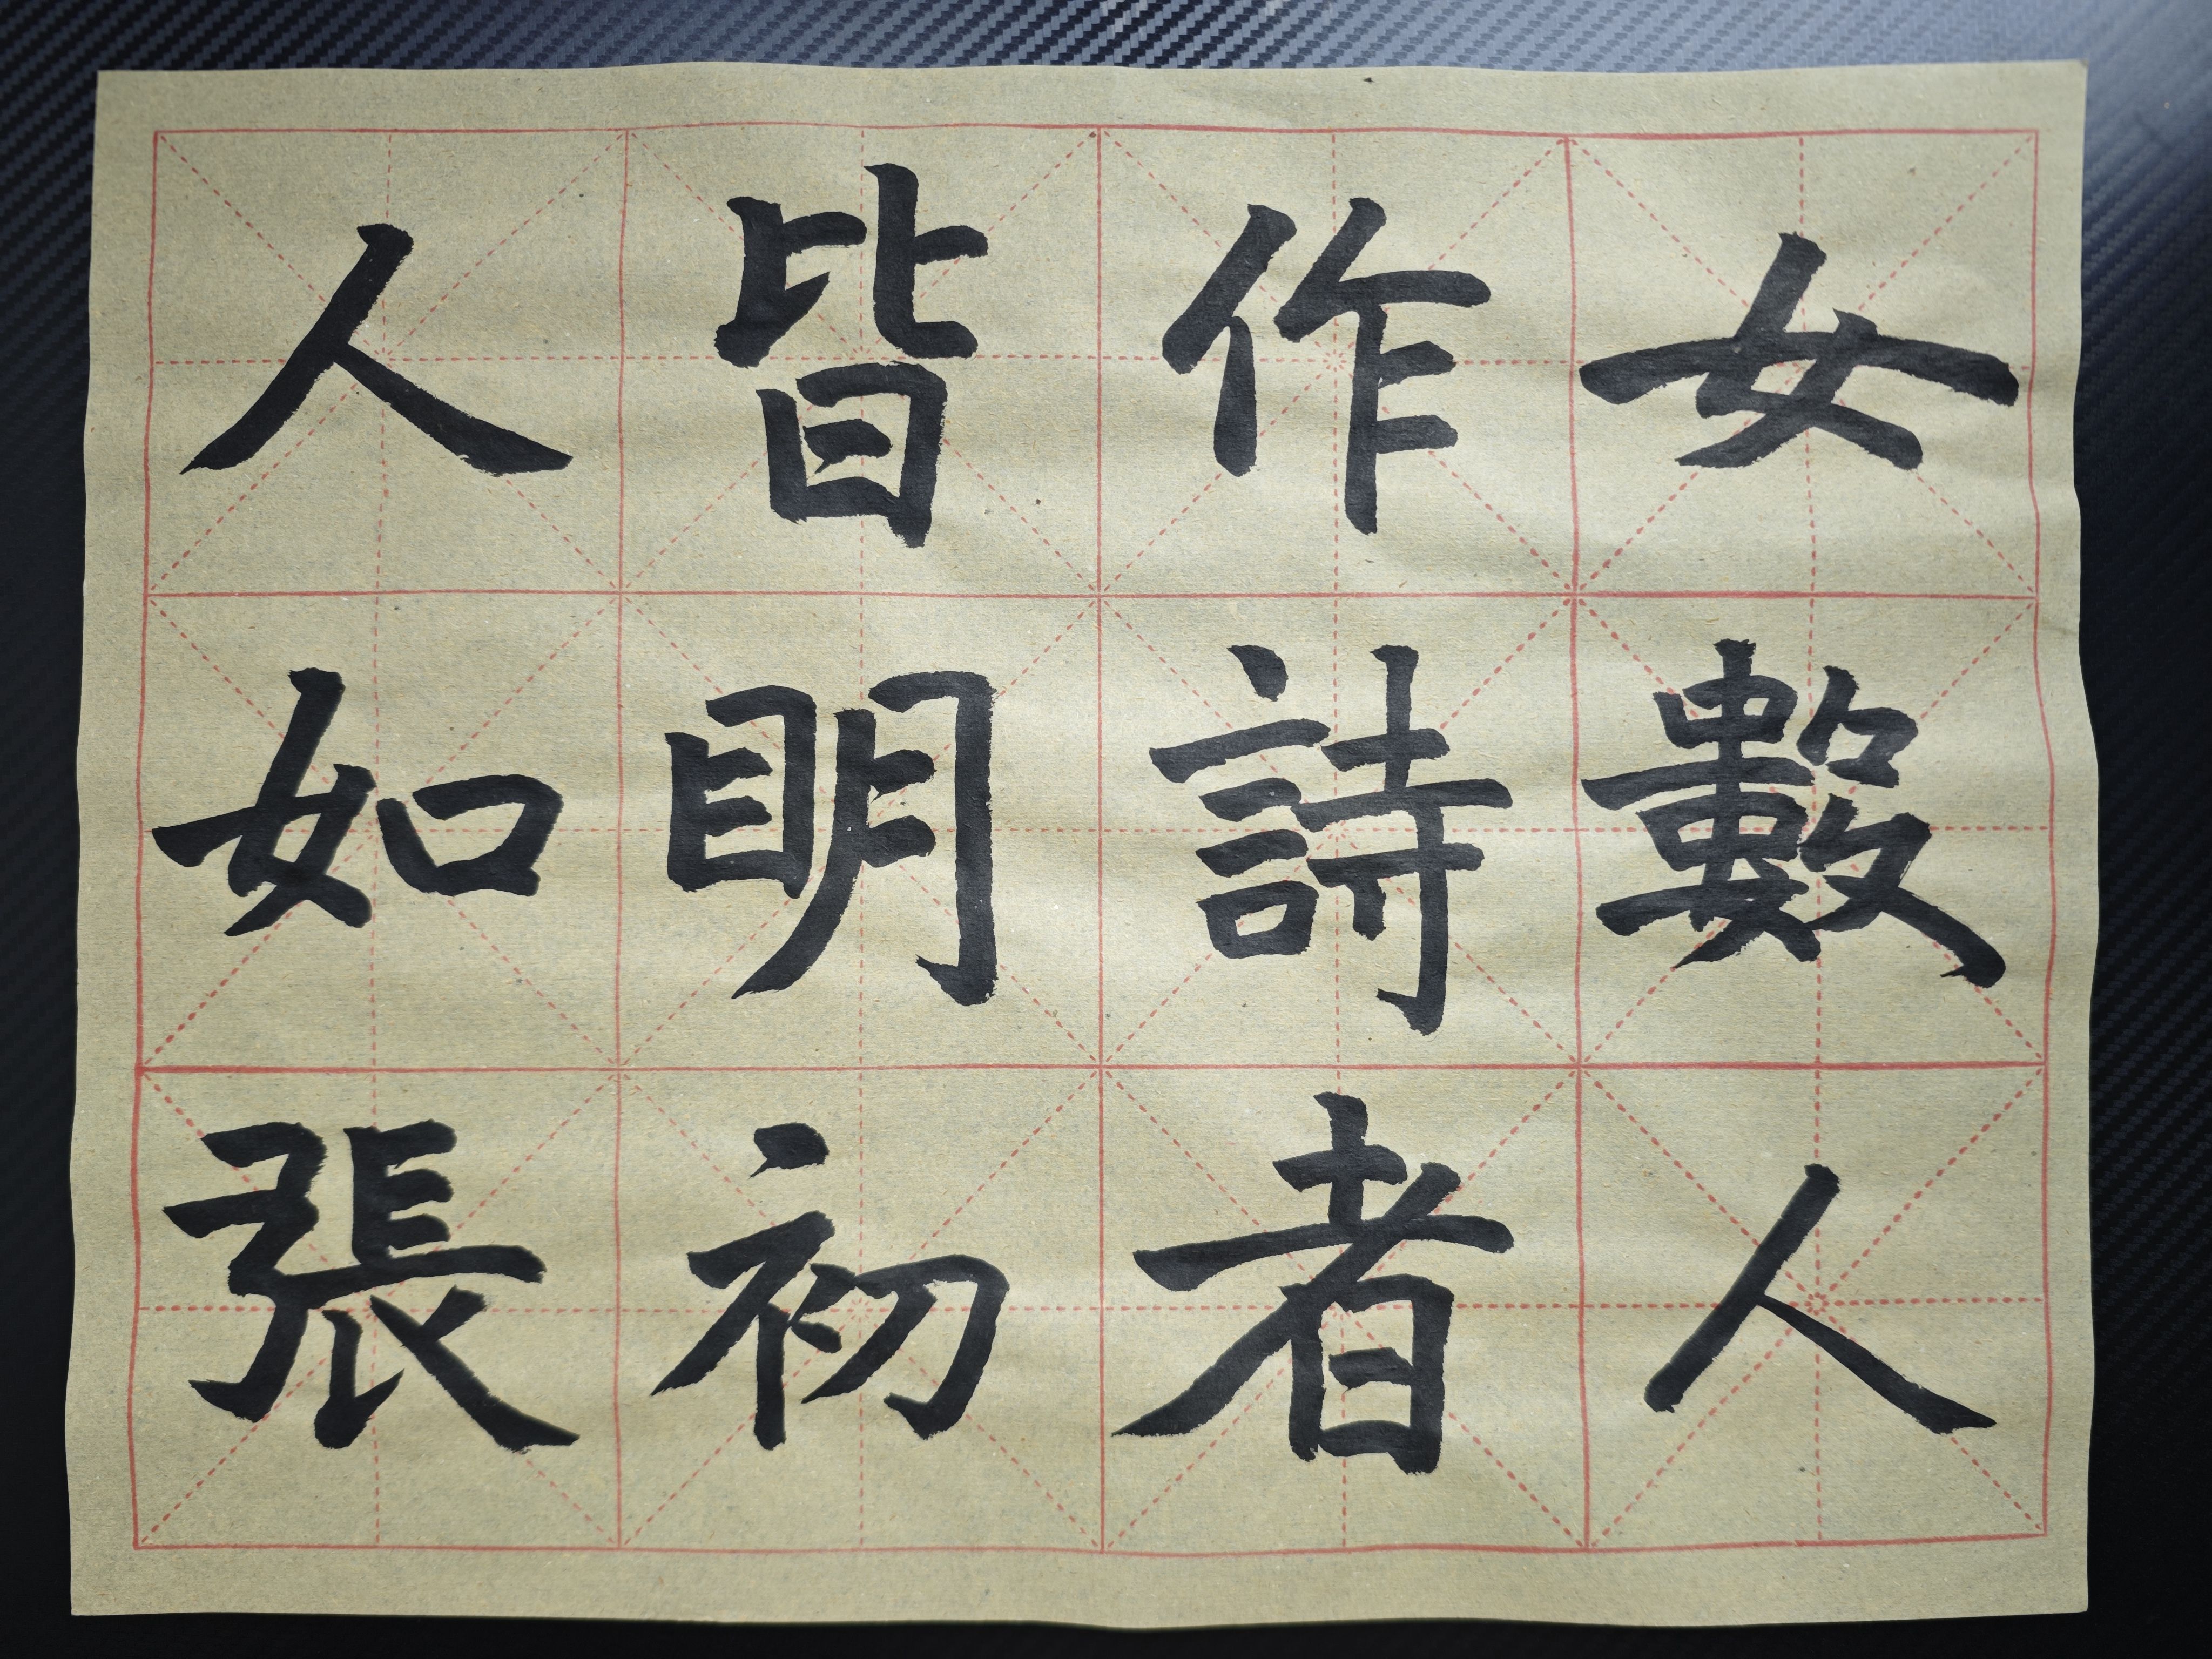 女數人
作詩者
皆眀初
人如張